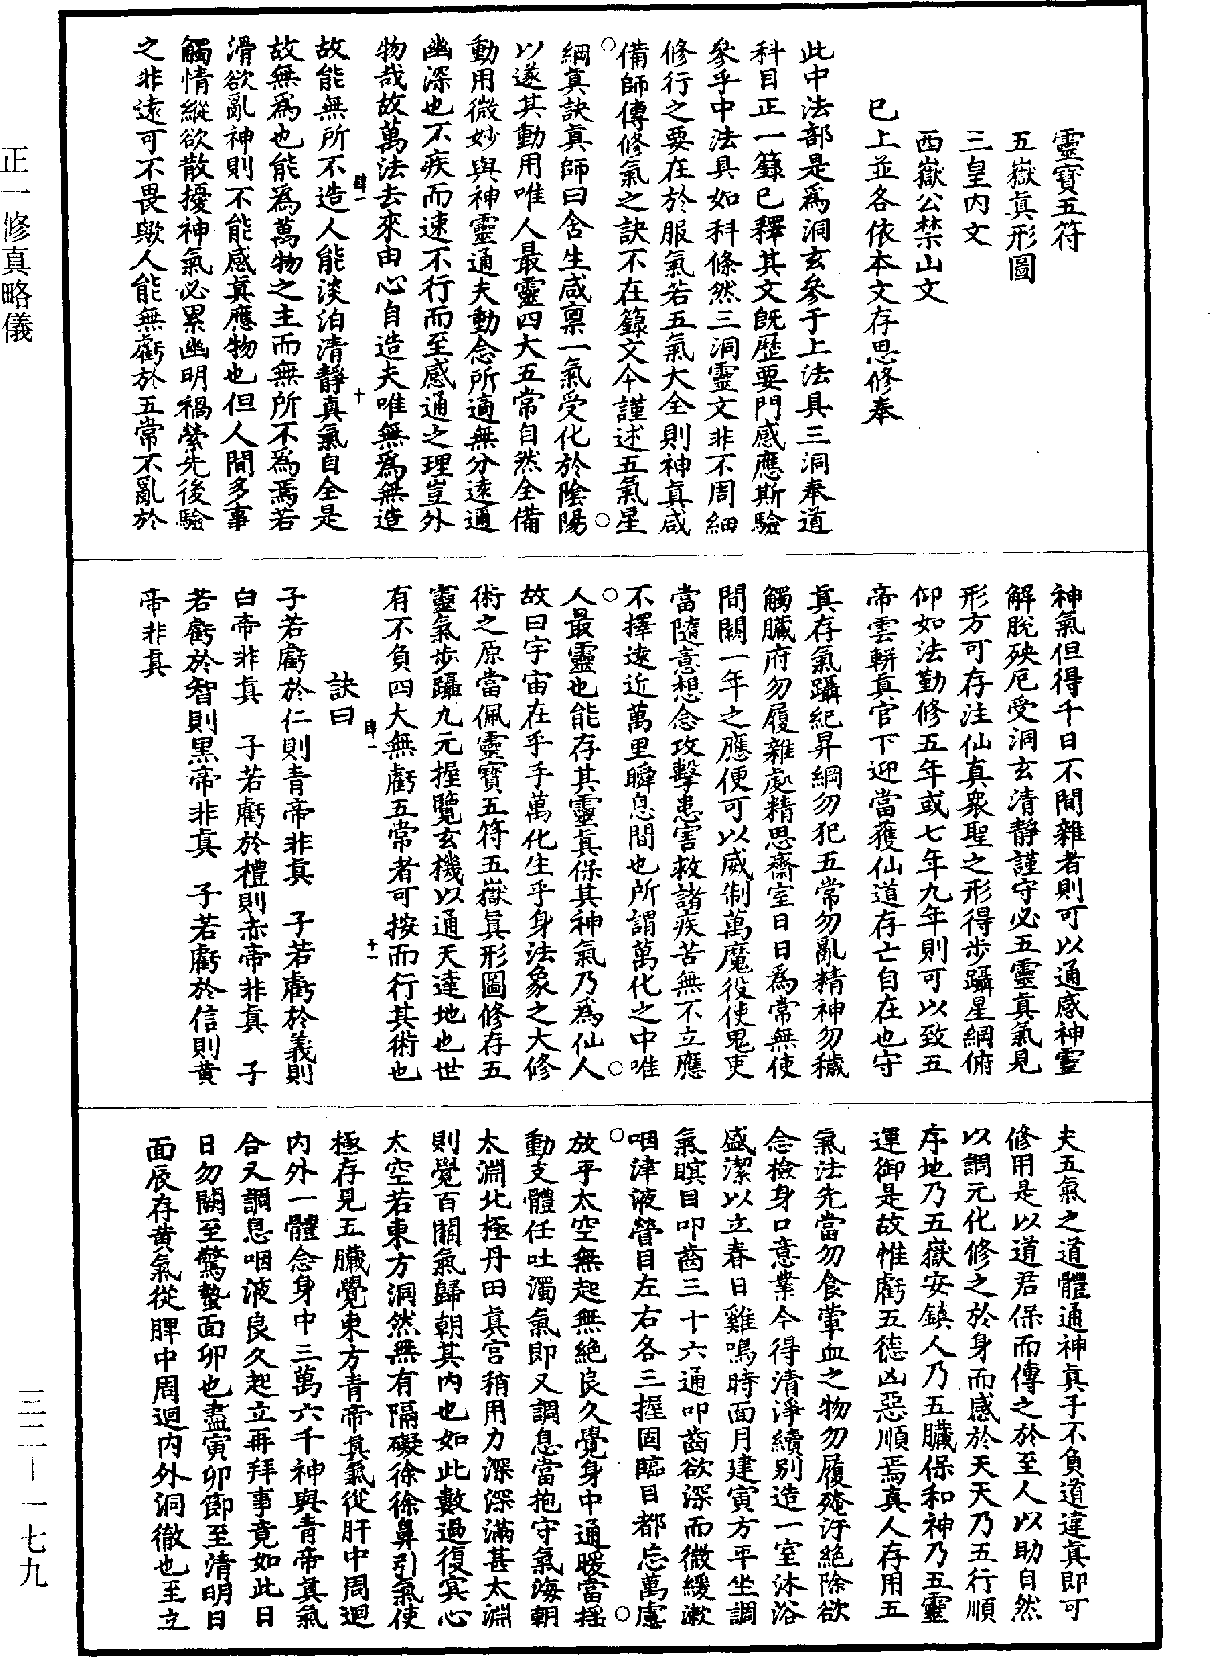 靈寶五符
五嶽真形圖
三皇內文
西嶽公禁山文
已上並各依本文存思修奉
此中法部是為洞玄參于上法具三洞奉道
科目正一籙已釋其文既歷要門感應斯驗
參乎中法具如科條然三洞靈文非不周細
修行之要在於服氣若五氣大全則神真咸
備師傳修氣之訣不在籙文今謹述五氣星
綱真訣真師曰含生咸禀一氣受化於陰陽
以遂其動用唯人最靈四大五常自然全備
動用微妙與神靈通夫動念所適無分遠通
幽深也不疾而速不行而至感通之理豈外
物哉故萬法去來由心自造夫唯無為無造
故能無所不造人能淡泊清靜真氣自全是
故無為也能為萬物之主而無所不為焉若
滑欲亂神則不能感真應物也但人間多事
觸情縱欲散擾神氣必累幽明禍縈先後驗
之非遠可不畏歟人能無虧於五常不亂於
神氣但得千日不間雜者則可以通感神靈
解脫殃厄受洞玄清靜謹守必五靈真氣見
形方可存注仙真衆聖之形得步躡星綱俯
仰如法勤修五年或七年九年則可以致五
帝雲軿真官下迎當獲仙道存亡自在也守
真存氣躡紀昇綱勿犯五常勿亂精神勿穢
觸臟府勿履雜處精思齋室日日為常無使
間闕一年之應便可以威制萬魔役使鬼吏
當隨意想念攻擊患害救諸疾苦無不立應
不擇遠近萬里瞬息間也所謂萬化之中唯
人最靈也能存其靈真保其神氣乃為仙人
故曰宇宙在乎手萬化生乎身法象之大修
術之原當佩靈寶五符五嶽真形圖修存五
靈氣步躡九元握覽玄機以通天達地也世
有不負四大無虧五常者可按而行其術也
訣曰
子若虧於仁則青帝非真　子若虧於義則
白帝非真　子若虧於禮則赤帝非真　子
若虧於智則黑帝非真　子若虧於信則黃
帝非真
夫五氣之道體通神真子不負道違真即可
修用是以道君保而傳之於至人以助自然
以調元化修之於身而感於天天乃五行順
序地乃五嶽安鎮人乃五臟保和神乃五靈
運御是故惟虧五德凶惡順焉真人存用五
氣法先當勿食葷血之物勿履殗汙絕除欲
念檢身口意業令得清淨續別造一室沐浴
盛潔以立春日雞鳴時面月建寅方平坐調
氣瞑目叩齒三十六通叩齒欲深而微緩漱
咽津液瞥目左右各三握固臨目都忘萬慮
放乎太空無起無絕良久覺身中通暖當搖
動支體任吐濁氣即又調息當抱守氣海朝
太淵北極丹田真宮稍用力深深滿甚太淵
則覺百關氣歸朝其內也如此數過復冥心
太空若東方洞然無有隔礙徐徐鼻引氣使
極存見五臟覺東方青帝真氣從肝中周迴
內外一體念身中三萬六千神與青帝真氣
合又調息咽液良久起立再拜事竟如此日
日勿闕至驚蟄面卯也盡寅卯節至清明日
面辰存黃氣從脾中周迴內外洞徹也至立
正一修真略儀
三二—一七九
肆一
十
肆一
十一